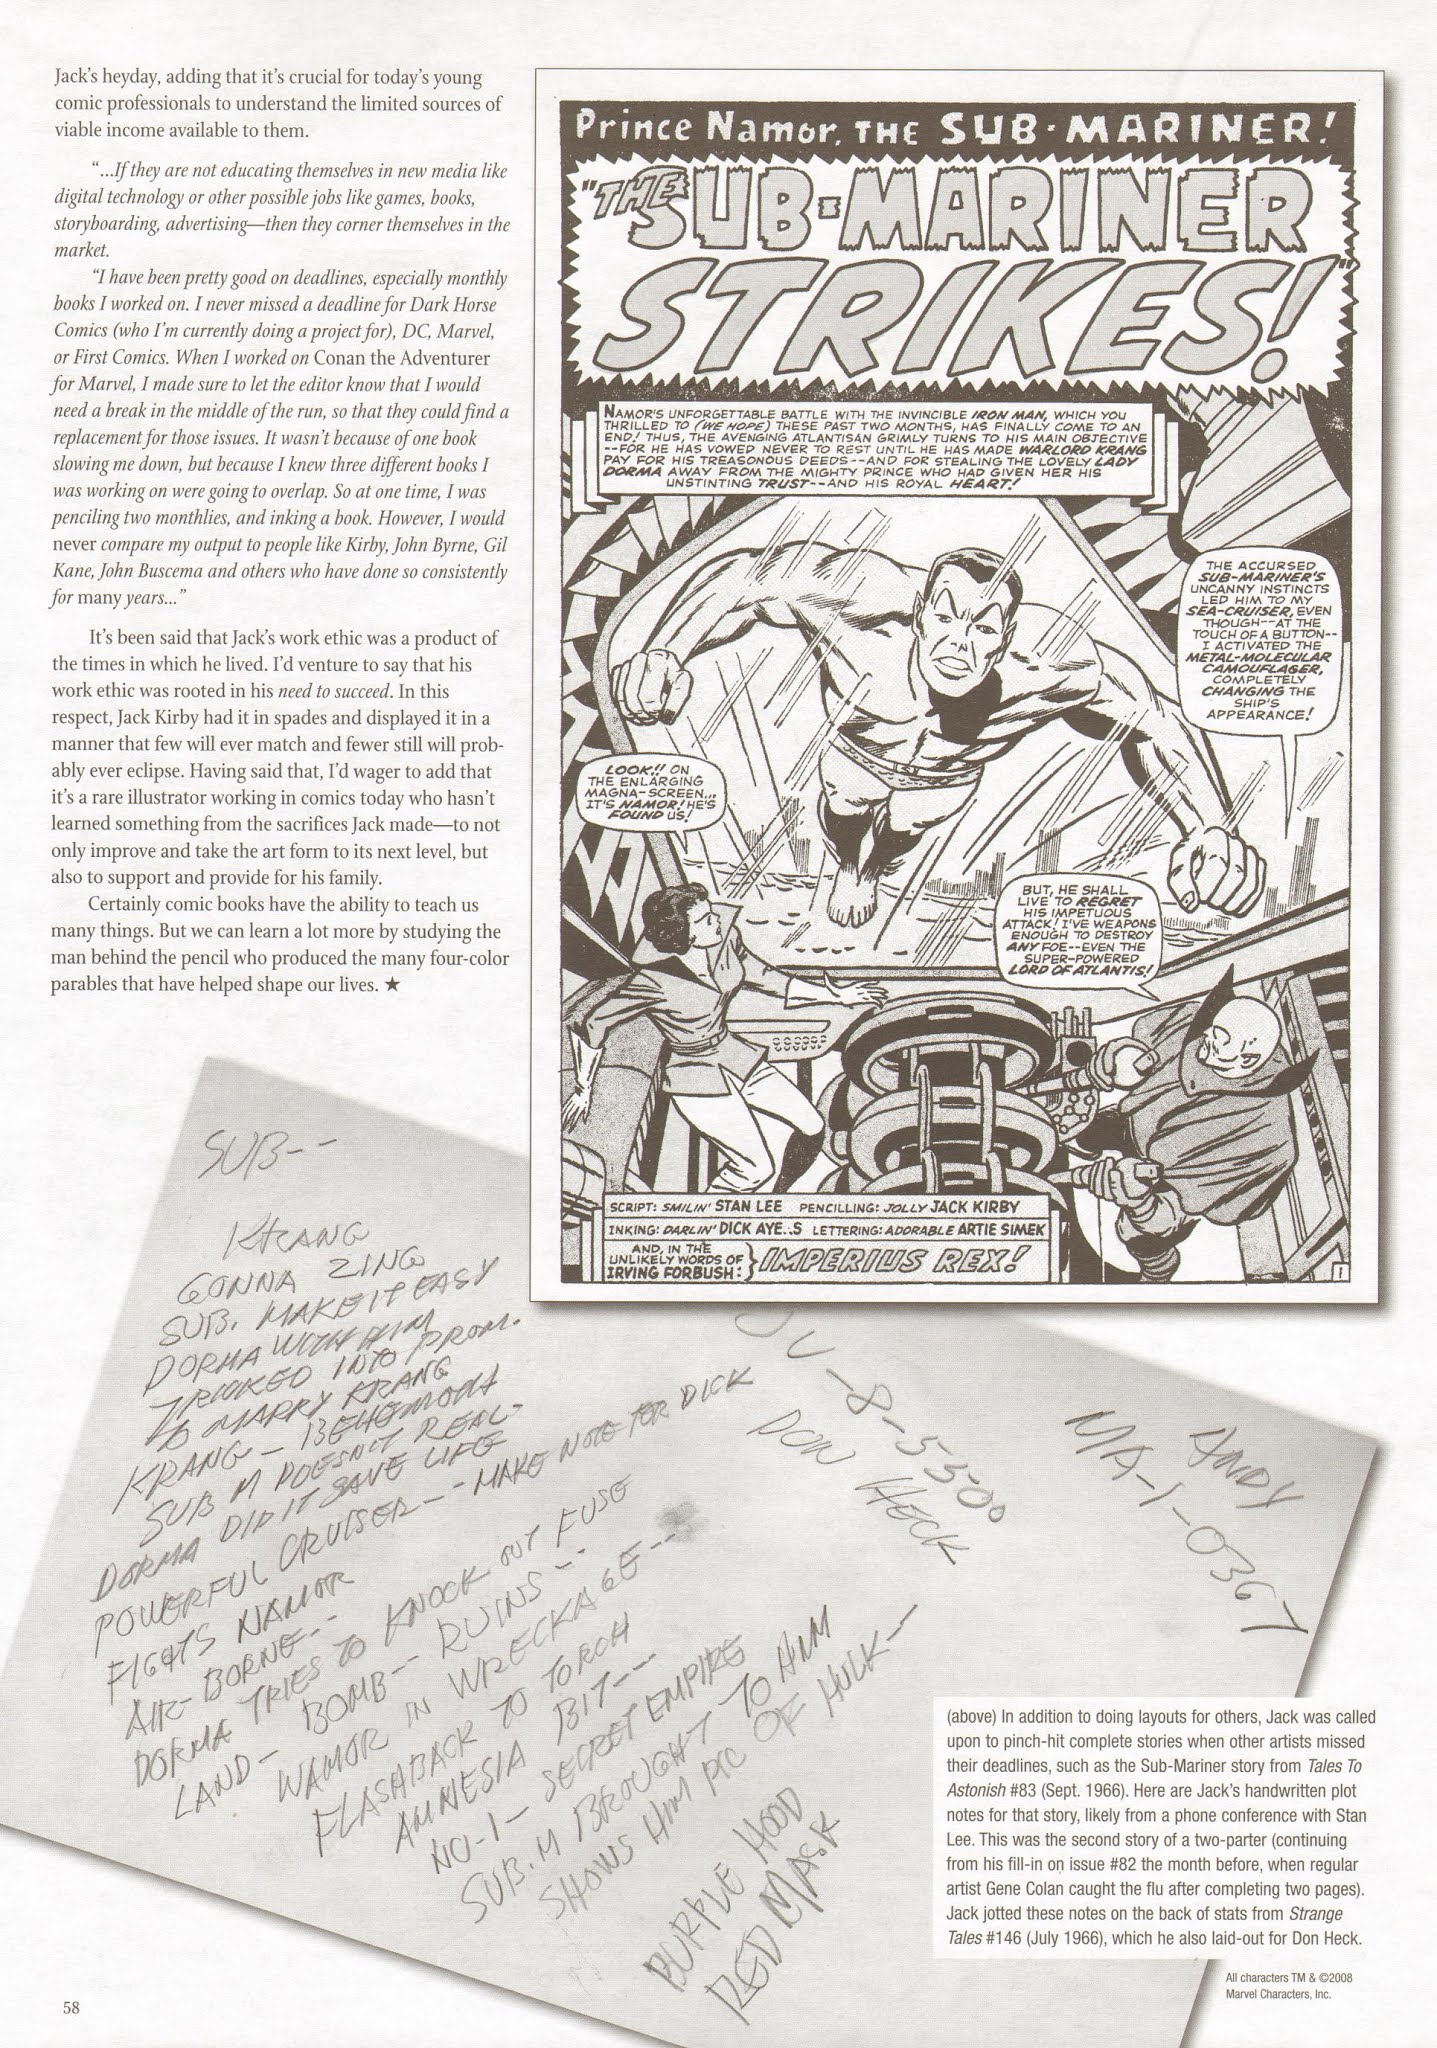 Jack's heyday, adding that it's crucial for today's young
comic professionals to understand the limited sources of
viable income available to them.
"...If they are not educating themselves in new media like
digital technology or other possible jobs like games, books,
storyboarding, advertising—then they corner themselves in the
market.
"I have been pretty good on deadlines, especially monthly
books I worked on. I never missed a deadline for Dark Horse
Comics (who I'm currently doing a project for), DC, Marvel,
or First Comics. When I worked on Conan the Adventurer
for Marvel, I made sure to let the editor know that I would
need a break in the middle of the run, so that they could find a
replacement for those issues. It wasn't because of one book
slowing me down, but because I knew three different books I
was working on were going to overlap. So at one time, I was
penciling two monthlies, and inking a book. However, I would
never compare my output to people like Kirby, John Byrne, Gil
Kane, John Buscema and others who have done so consistently
for many years..."
It's been said that Jack's work ethic was a product of
the times in which he lived. I'd venture to say that his
work ethic was rooted in his need to succeed. In this
respect, Jack Kirby had it in spades and displayed it in a
manner that few will ever match and fewer still will prob-
ably ever eclipse. Having said that, I'd wager to add that
it's a rare illustrator working in comics today who hasn't
learned something from the sacrifices Jack made—to not
only improve and take the art form to its next level, but
also to support and provide for his family.
Certainly comic books have the ability to teach us
many things. But we can learn a lot more by studying the
man behind the pencil who produced the many four-color
parables that have helped shape our lives. ★
Prince Namor, THE SUB-MARINER!
"THE SUB-MARINER
STRIKES!"
NAMOR'S UNFORGETTABLE BATTLE WITH THE INVINCIBLE IRON MAN, WHICH YOU
THRILLED TO (WE HOPE) THESE PAST TWO MONTHS, HAS FINALLY COME TO AN
END! THUS, THE AVENGING ATLANTISAN GRIMLY TURNS TO HIS MAIN OBJECTIVE
--FOR HE HAS VOWED NEVER TO REST UNTIL HE HAS MADE WARLORD KRANG
PAY FOR HIS TREASONOUS DEEDS--AND FOR STEALING THE LOVELY LADY
DORMA AWAY FROM THE MIGHTY PRINCE WHO HAD GIVEN HER HIS
UNSTINTING TRUST--AND HIS ROYAL HEART!
THE ACCURSED
SUB-MARINER'S
UNCANNY INSTINCTS
LED HIM TO MY
SEA-CRUISER, EVEN
THOUGH--AT THE
TOUCH OF A BUTTON--
I ACTIVATED THE
METAL-MOLECULAR
CAMOUFLAGER,
COMPLETELY
CHANGING THE
SHIP'S
APPEARANCE!
LOOK!! ON
THE ENLARGING
MAGNA-SCREEN...
IT'S NAMOR! HE'S
FOUND US!
BUT, HE SHALL
LIVE TO REGRET
HIS IMPETUOUS
ATTACK! I'VE WEAPONS
ENOUGH TO DESTROY
ANY FOE--EVEN THE
SUPER-POWERED
LORD OF ATLANTIS!
SCRIPT: SMILIN' STAN LEE PENCILLING: JOLLY JACK KIRBY
INKING: DARLIN' DICK AYE..S LETTERING: ADORABLE ARTIE SIMEK
AND, IN THE
UNLIKELY WORDS OF
IRVING FORBUSH:
IMPERIUS REX!
1
SUB--
KRANG
GONNA ZING
SUB. MAKE IT EASY
DORMA WITH HIM
TRICKED INTO PROM.
TO MARRY KRANG
KRANG - BEHEMOTH
SUB M DOESN'T REAL-
DORMA DID IT SAVE LIFE
POWERFUL CRUISER -- MAKE NOTE FOR DICK
FIGHTS NAMOR
AIR-BORNE--
DORMA TRIES TO KNOCK OUT FUSE
LAND - BOMB-- RUINS--
NAMOR IN WRECKAGE--
FLASHBACK TO TORCH
AMNESIA BIT---
NO-1- SECRET EMPIRE
SUB. M BROUGHT TO HIM
SHOWS HIM PIC OF HULK-
PURPLE HOOD
RED MASK
U-8-5500
DON HECK
ANDY
MA-1-0367
(above) In addition to doing layouts for others, Jack was called
upon to pinch-hit complete stories when other artists missed
their deadlines, such as the Sub-Mariner story from Tales To
Astonish #83 (Sept. 1966). Here are Jack's handwritten plot
notes for that story, likely from a phone conference with Stan
Lee. This was the second story of a two-parter (continuing
from his fill-in on issue #82 the month before, when regular
artist Gene Colan caught the flu after completing two pages).
Jack jotted these notes on the back of stats from Strange
Tales #146 (July 1966), which he also laid-out for Don Heck.
All characters TM & ©2008
Marvel Characters, Inc.
58